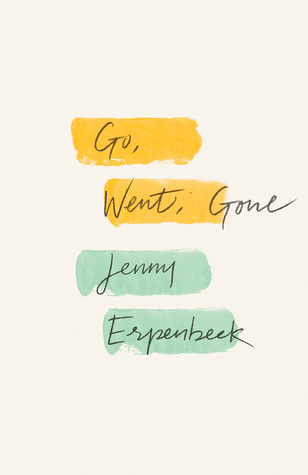 Go,
Went, Gone
Jenny
Erpenbeck